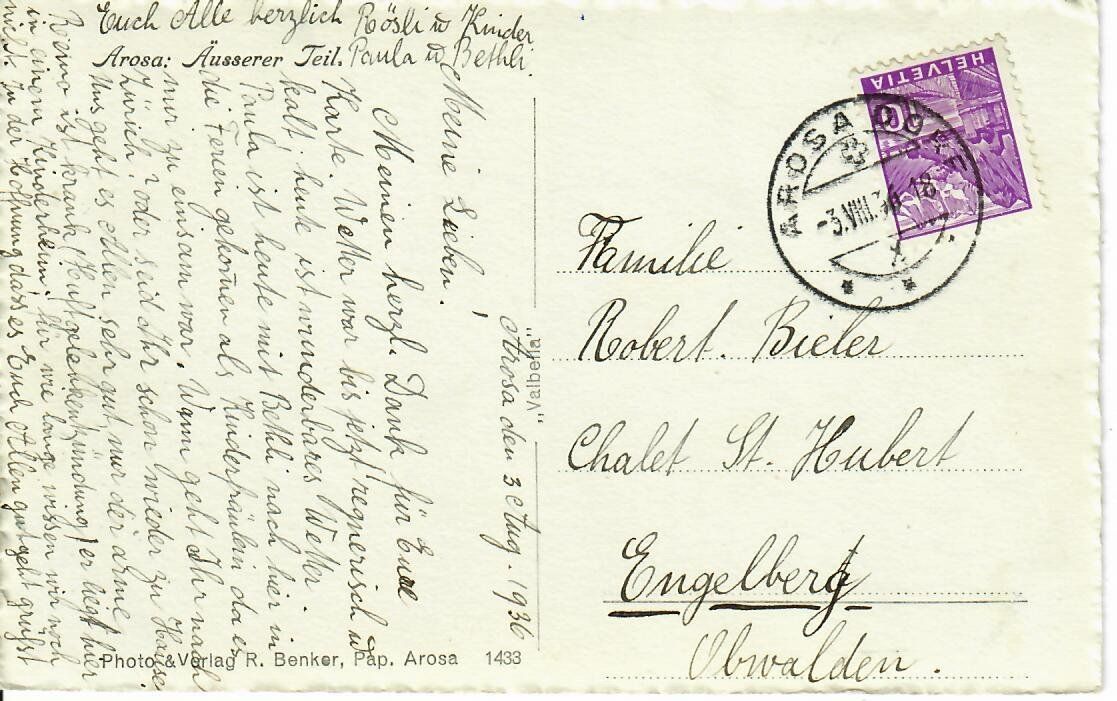 Arosa den 3 Aug. 1936
"Valbella"
Meine Lieben!
Meinen herzl. Dank für Eure
Karte. Wetter war bis jetzt regnerisch u
kalt, heute ist wunderbares Wetter.
Paula ist heute mit Bethli nach hier in
die Ferien gekom̄en als Kinderfräulein da es
mir zu einsam war. Wann geht Ihr nach
Zürich oder seid Ihr schon wieder zu Hause
Uns geht es Allen sehr gut, nur der arme
Remo ist krank (Hüftgelenkentzündung) er liegt hier
in einem Kinderheim, für wie lange wissen wir noch
nicht. In der Hoffnung dass es Euch Allen gut geht grüsst
Euch Alle herzlich Rösli u Kinder
Paula u Bethli.
Arosa: Äusserer Teil.
HELVETIA
10
AROSA DORF
-3.VIII.36-18
Familie
Robert. Bieler
Chalet St. Hubert
Engelberg
Obwalden.
Photo & Verlag R. Benker, Pap. Arosa 1433